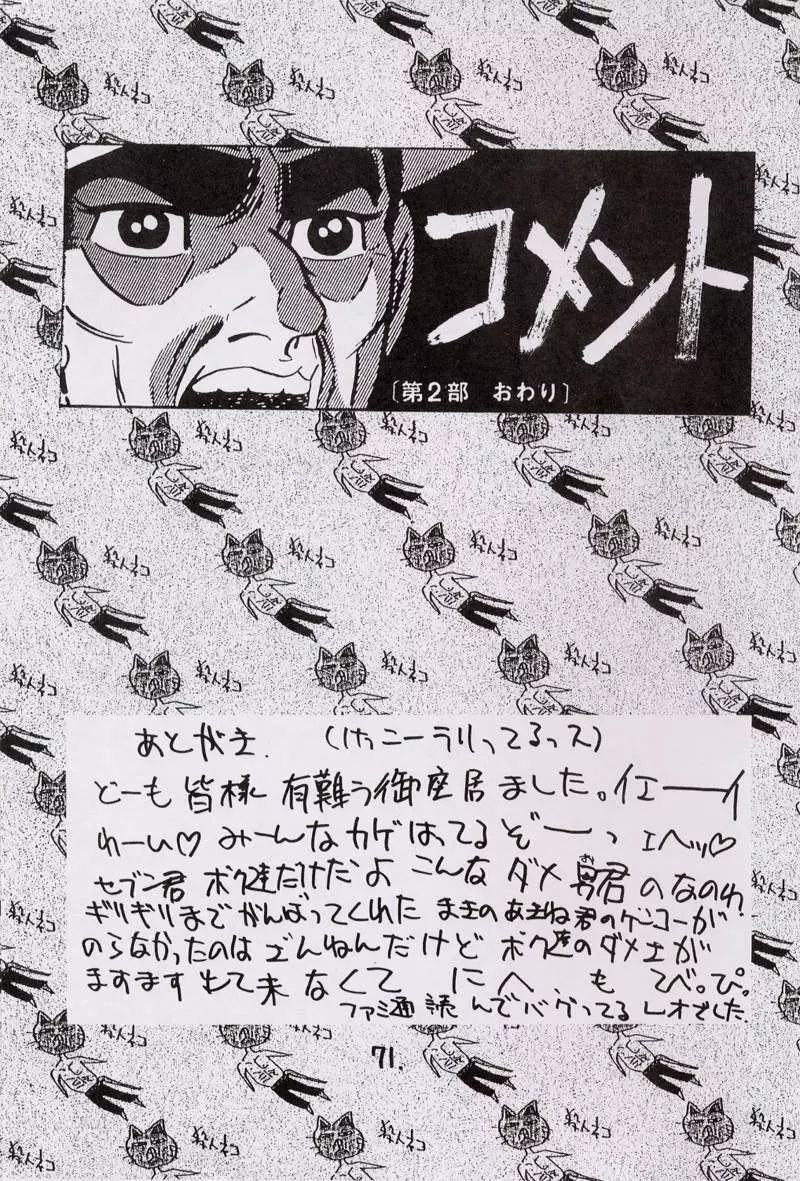 コメント
〔第2部 おわり〕
あとがき. (けっこーラリってるっス)
どーも皆様 有難う御座居ました。イエーイ
わーい♡ みーんなカゲはってるぞーっ エヘッ♡
セブン君 ボク達だけだよ こんな ダメ男君のなのわ
ギリギリまでがんばってくれた まきのあきね君のゲンコーが
のらなかったのは ざんねんだけど ボク達のダメェが
ますます 出て来なくて に も
ファミ通 読んでバグってる レオでした.
71.
殺人ネコ